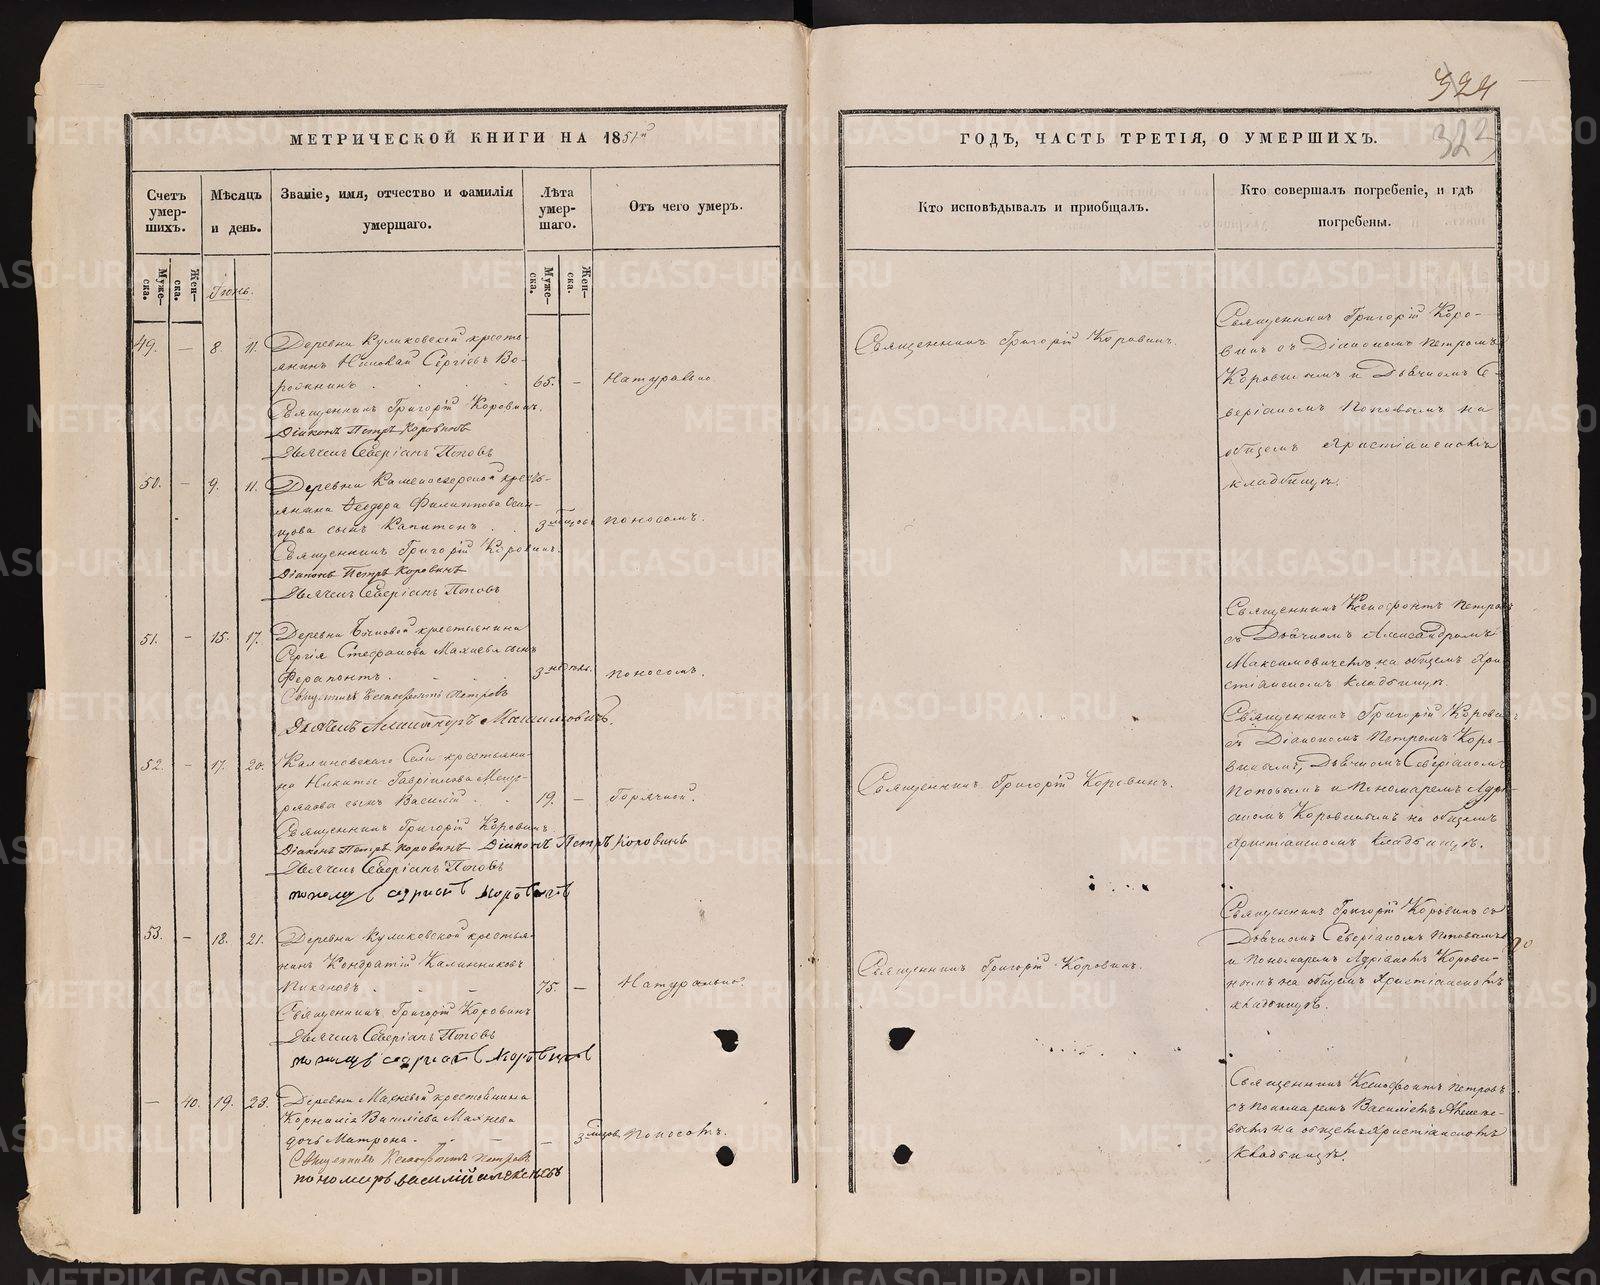 324
323
МЕТРИЧЕСКОЙ КНИГИ НА 1851й
ГОДЪ, ЧАСТЬ ТРЕТІЯ, О УМЕРШИХЪ.
Счетъ умер-шихъ.
Мѣсяцъ и день.
Званіе, имя, отчество и фамилія умершаго.
Лѣта умер-шаго.
Отъ чего умеръ.
Кто исповѣдывалъ и пріобщалъ.
Кто совершалъ погребеніе, и гдѣ погребены.
Муже-ска.
Жен-ска.
Іюнь.
Муже-ска.
Жен-ска.
49. — 8. 11.
Деревни Куликовской кресть-
янинъ Николай Сергіевъ Во-
ронинъ 65. — Натурально
Священникъ Григорій Коровинъ.
Діаконъ Петръ Коровинъ
Дьячекъ Северіанъ Поповъ
Священникъ Григорій Коровинъ.
Священникъ Григорій Коро-
винъ съ Діакономъ Петромъ
Коровинымъ и Дьячкомъ Се-
веріаномъ Поповымъ на
общемъ христіанскомъ
кладбищѣ.
50. — 9. 11.
Деревни Каменоозерской кресть-
янина Ѳеодора Филиппова
сынъ Капитонъ 3 мѣсяцовъ поносомъ.
Священникъ Григорій Коровинъ.
Діаконъ Петръ Коровинъ
Дьячекъ Северіанъ Поповъ
51. — 15. 17.
Деревни крестьянина
Сергія Стефанова Махнева сынъ
Ферапонтъ. 3 недѣль. поносомъ.
Священникъ Ксенофонтъ Петровъ
Дьячекъ Александръ Максимовичъ.
Священникъ Ксенофонтъ Петровъ
съ Дьячкомъ Александромъ
Максимовичемъ на общемъ Хри-
стіанскомъ кладбищѣ.
52. — 17. 20.
Калиновскаго Села крестьяни-
на Никиты Гавріилова
сынъ Василій 19. — Горячкой.
Священникъ Григорій Коровинъ
Діаконъ Петръ Коровинъ Діаконъ Петръ Коровинъ
Дьячекъ Северіанъ Поповъ
Священникъ Григорій Коровинъ.
Священникъ Григорій Коровинъ
съ Діакономъ Петромъ Коро-
винымъ, Дьячкомъ Северіаномъ
Поповымъ и Пономаремъ Адрі-
аномъ Коровинымъ на общемъ
Христіанскомъ кладбищѣ.
53. — 18. 21.
Деревни Куликовской крестья-
нинъ Кондратій Калинниковъ
Пикановъ 75. — Натурально.
Священникъ Григорій Коровинъ
Дьячекъ Северіанъ Поповъ
Священникъ Григорій Коровинъ.
Священникъ Григорій Коровинъ съ
Дьячкомъ Северіаномъ Поповымъ
и Пономаремъ Адріаномъ Корови-
нымъ на общемъ Христіанскомъ
кладбищѣ.
— 40. 19. 23.
Деревни Махневой крестьянина
Корнилія Василіева Махнева
дочь Матрона. — 3 мѣсяцов. Поносомъ.
Священникъ Ксенофонтъ Петровъ
пономарь василій алексѣевъ
Священникъ Ксенофонтъ Петровъ
съ пономаремъ Василіемъ Алексѣе-
вымъ на общемъ Христіанскомъ
кладбищѣ.
METRIKI.GASO-URAL.RU